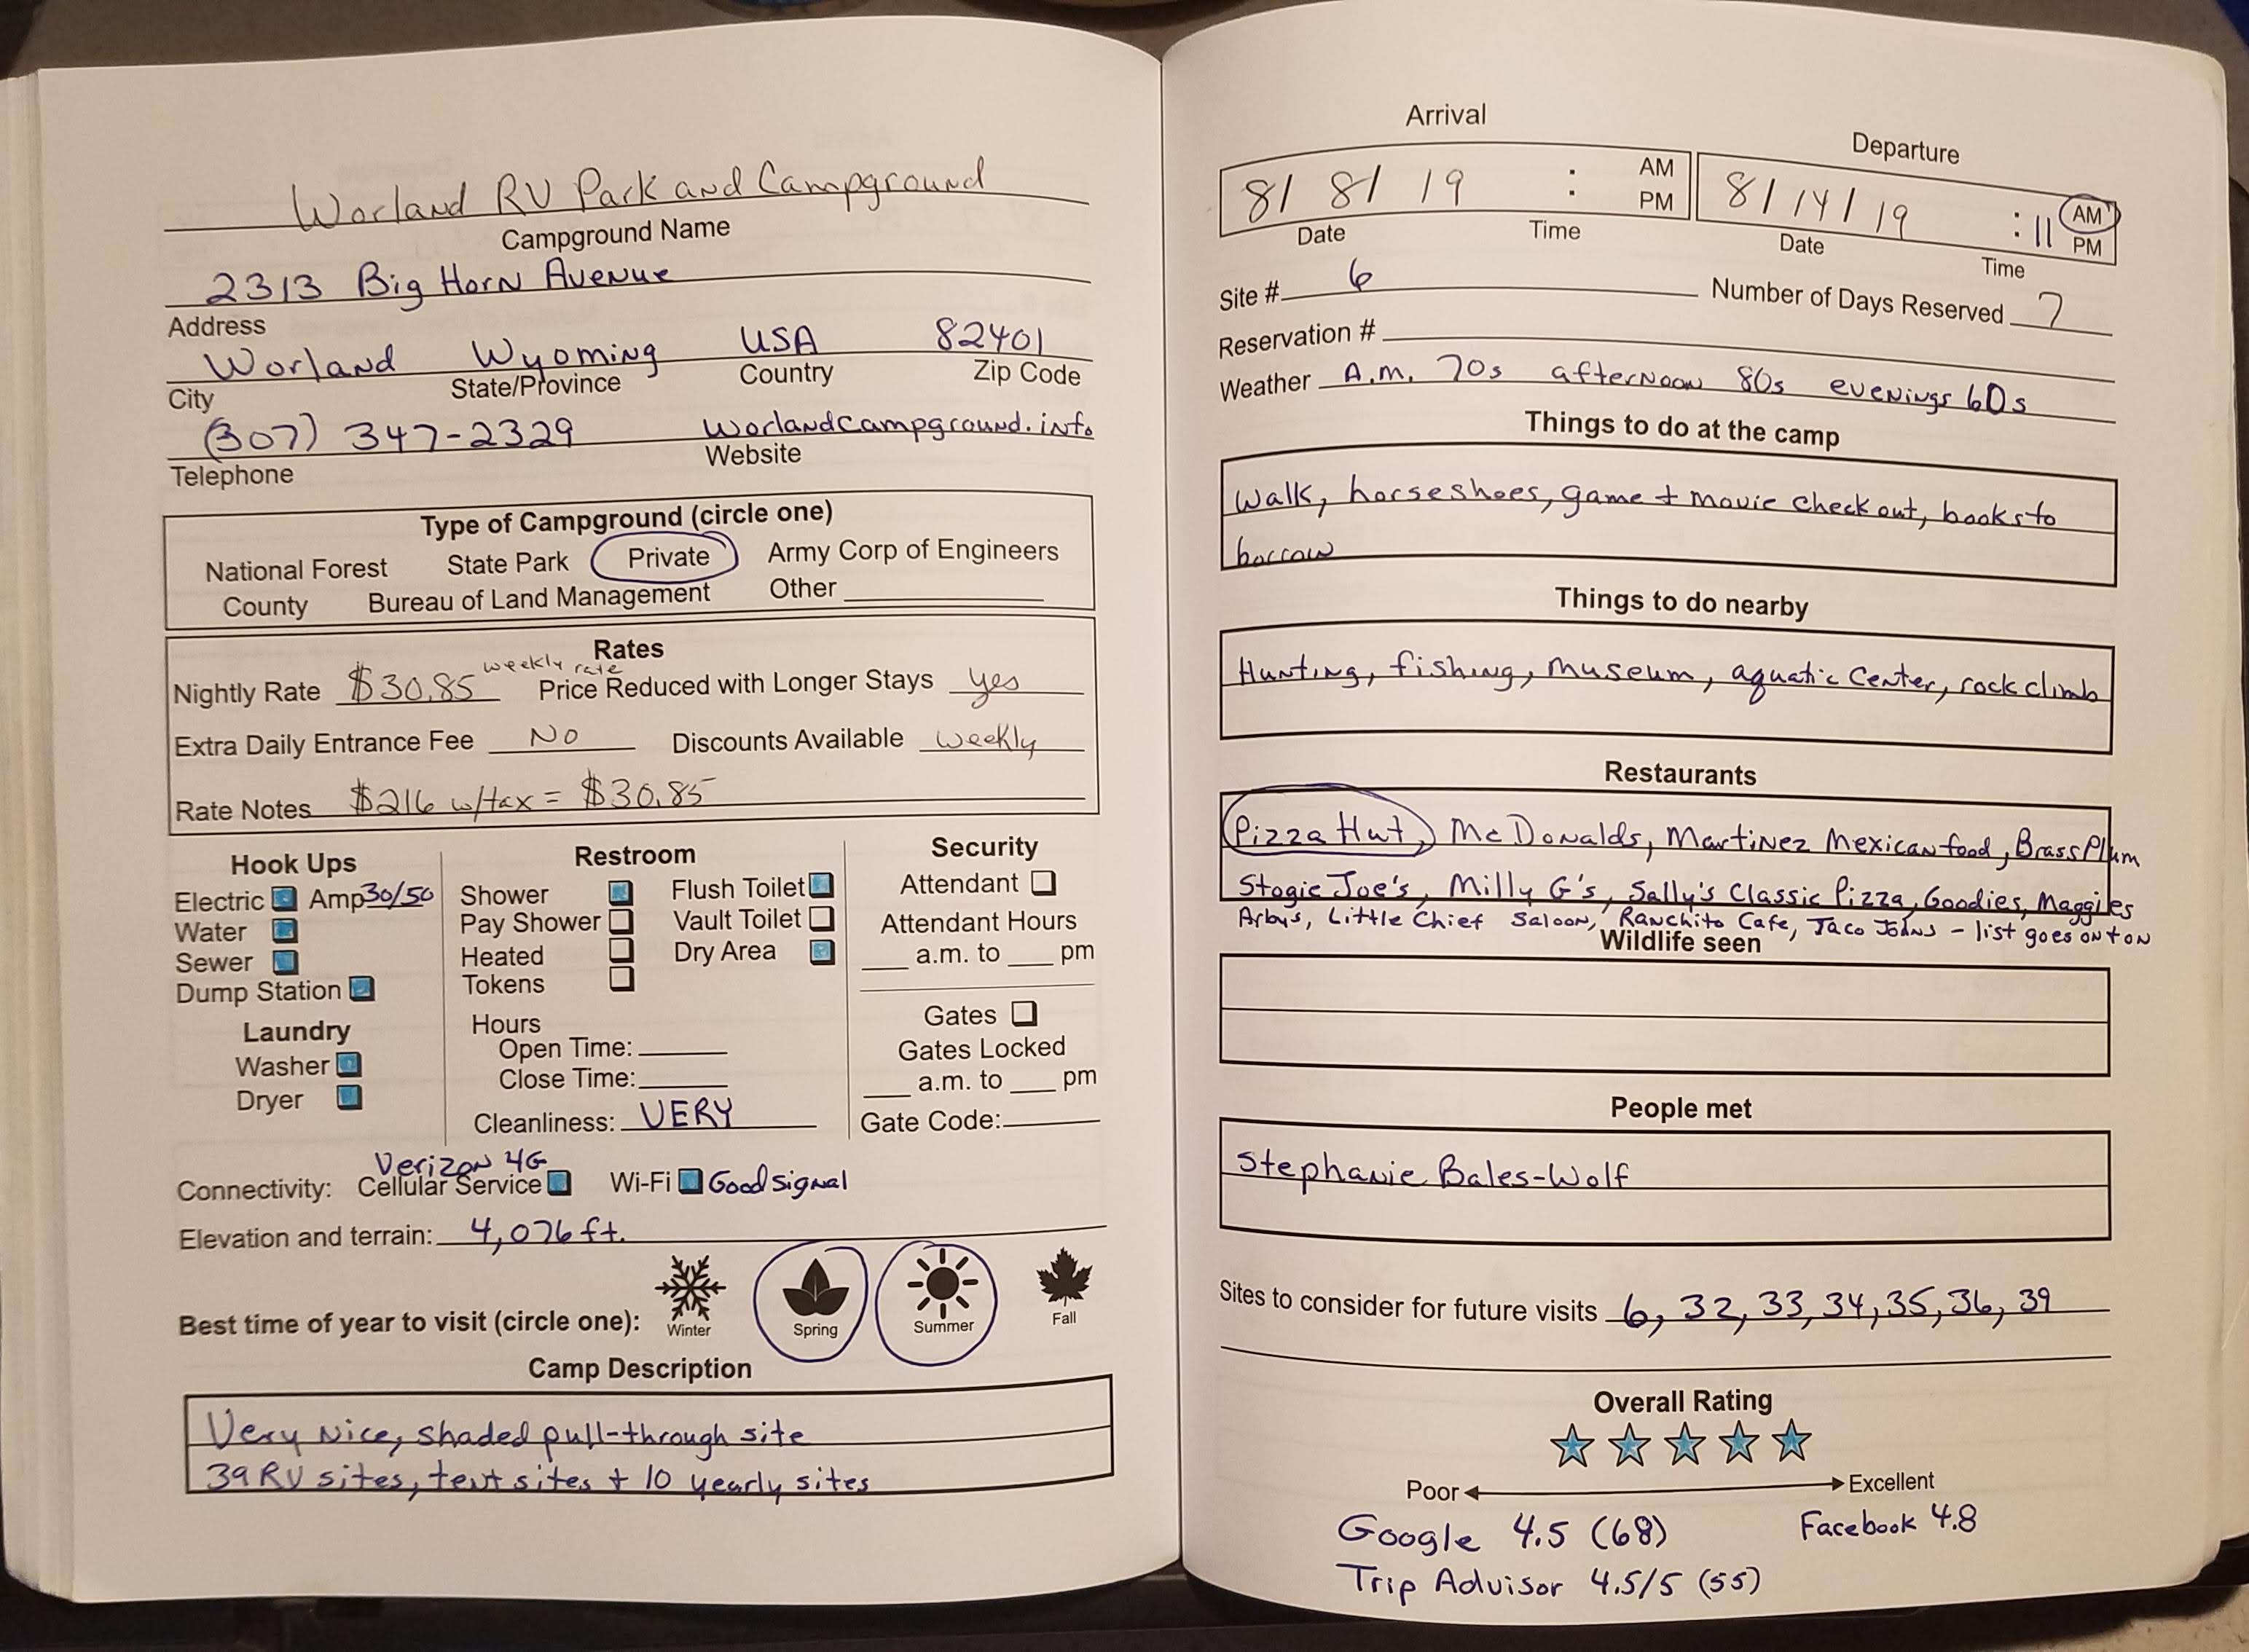 Worland RV Park and Campground
Campground Name
2313 Big Horn Avenue
Address
Worland Wyoming USA 82401
City State/Province Country Zip Code
(307) 347-2329 worlandcampground.info
Telephone Website
Type of Campground (circle one)
National Forest State Park Private Army Corp of Engineers
County Bureau of Land Management Other
Rates
weekly rate
Nightly Rate $30.85 Price Reduced with Longer Stays yes
Extra Daily Entrance Fee No Discounts Available weekly
Rate Notes $216 w/tax = $30.85
Hook Ups
Electric Amp 30/50
Water
Sewer
Dump Station
Laundry
Washer
Dryer
Restroom
Shower Flush Toilet
Pay Shower Vault Toilet
Heated Dry Area
Tokens
Hours
Open Time:
Close Time:
Cleanliness: VERY
Security
Attendant
Attendant Hours
a.m. to pm
Gates
Gates Locked
a.m. to pm
Gate Code:
Verizon 4G
Connectivity: Cellular Service Wi-Fi Good signal
Elevation and terrain: 4,076 ft.
Best time of year to visit (circle one): Winter Spring Summer Fall
Camp Description
Very nice, shaded pull-through site
39 RV sites, tent sites + 10 yearly sites
Arrival
8/ 8/ 19 : AM
PM
Date Time
Departure
8/14/19 :11 AM
PM
Date Time
Site # 6 Number of Days Reserved 7
Reservation #
Weather A.m. 70s afternoon 80s evenings 60s
Things to do at the camp
Walk, horseshoes, game + movie check out, books to
borrow
Things to do nearby
Hunting, fishing, museum, aquatic Center, rock climb
Restaurants
Pizza Hut, McDonalds, Martinez Mexican food, Brass Plum
Stogie Joe's, Milly G's, Sally's Classic Pizza, Goodies, Maggies
Arbys, Little Chief Saloon, Ranchito Cafe, Taco Johns - list goes on + on
Wildlife seen
People met
Stephanie Bales-Wolf
Sites to consider for future visits 6, 32, 33, 34, 35, 36, 39
Overall Rating
Poor Excellent
Google 4.5 (68) Facebook 4.8
Trip Advisor 4.5/5 (55)